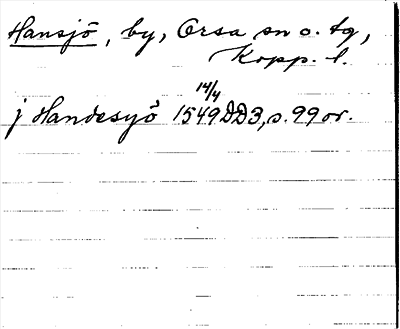 Hansjö, by, Orsa sn o. tg,
Kopp. l.
14/4
j Handesyö 1549 DD3, s. 99 or.